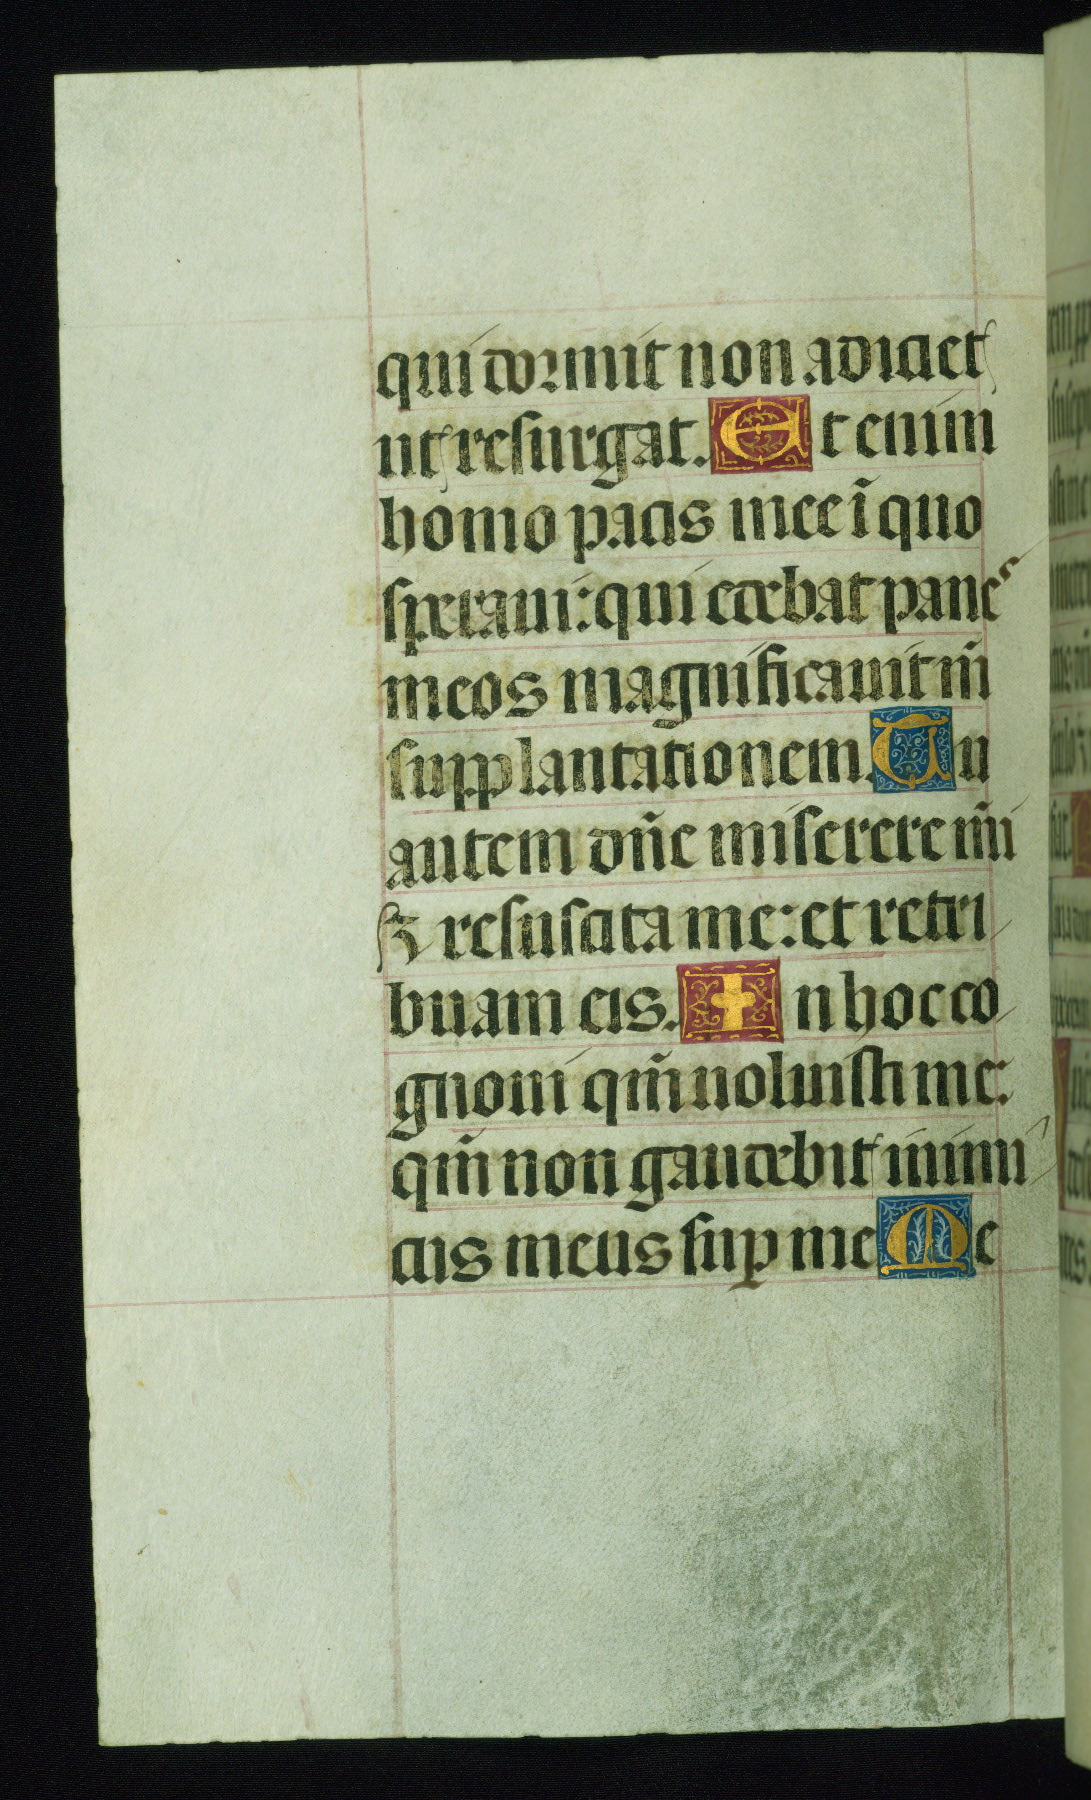 qui dormit non adiciet
ut resurgat. Et enim
homo pacis mee ī quo
speraui: qui edebat panes
meos magnificauit m̄
supplantationem. Tu
autem dn̄e miserere m̄i
sꝫ resuscita me: et retri
buam eis. In hoc co
gnoui qm̄ uoluisti me:
qm̄ non gaudebit inimi
cus meus suꝑ me Me